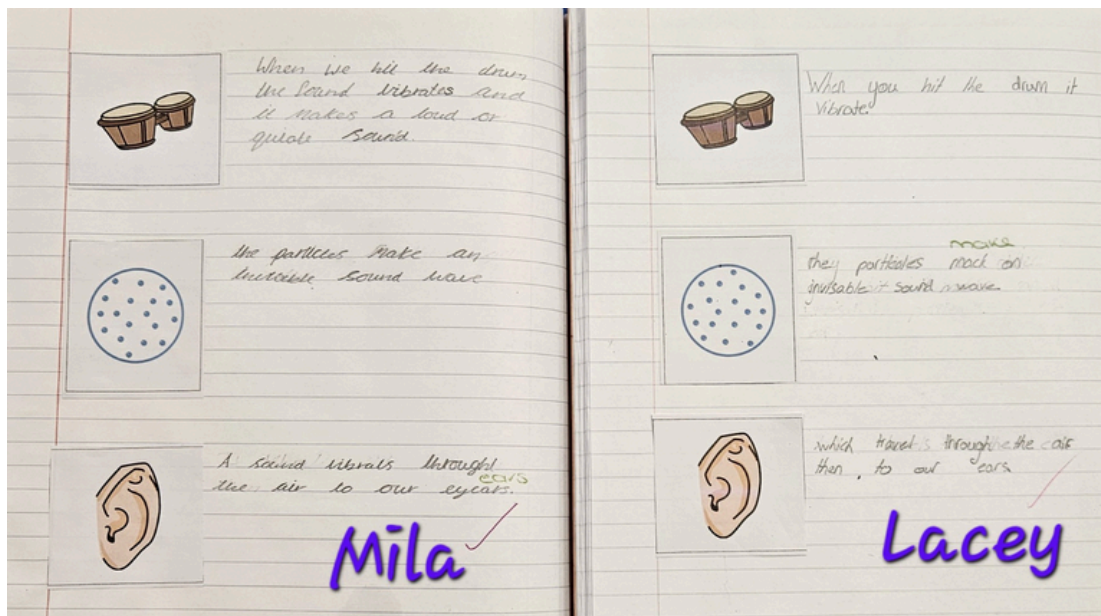 When we hit the drum
the sound vibrates and
it makes a loud or
quiate sound.
the particles make an
sound wave
A sound vibrats throught
ears
the air to our eyears.
Mila
When you hit the drum it
vibrate.
make
they particles mack an
invisable sound wave
which travel through the air
then to our ears.
Lacey